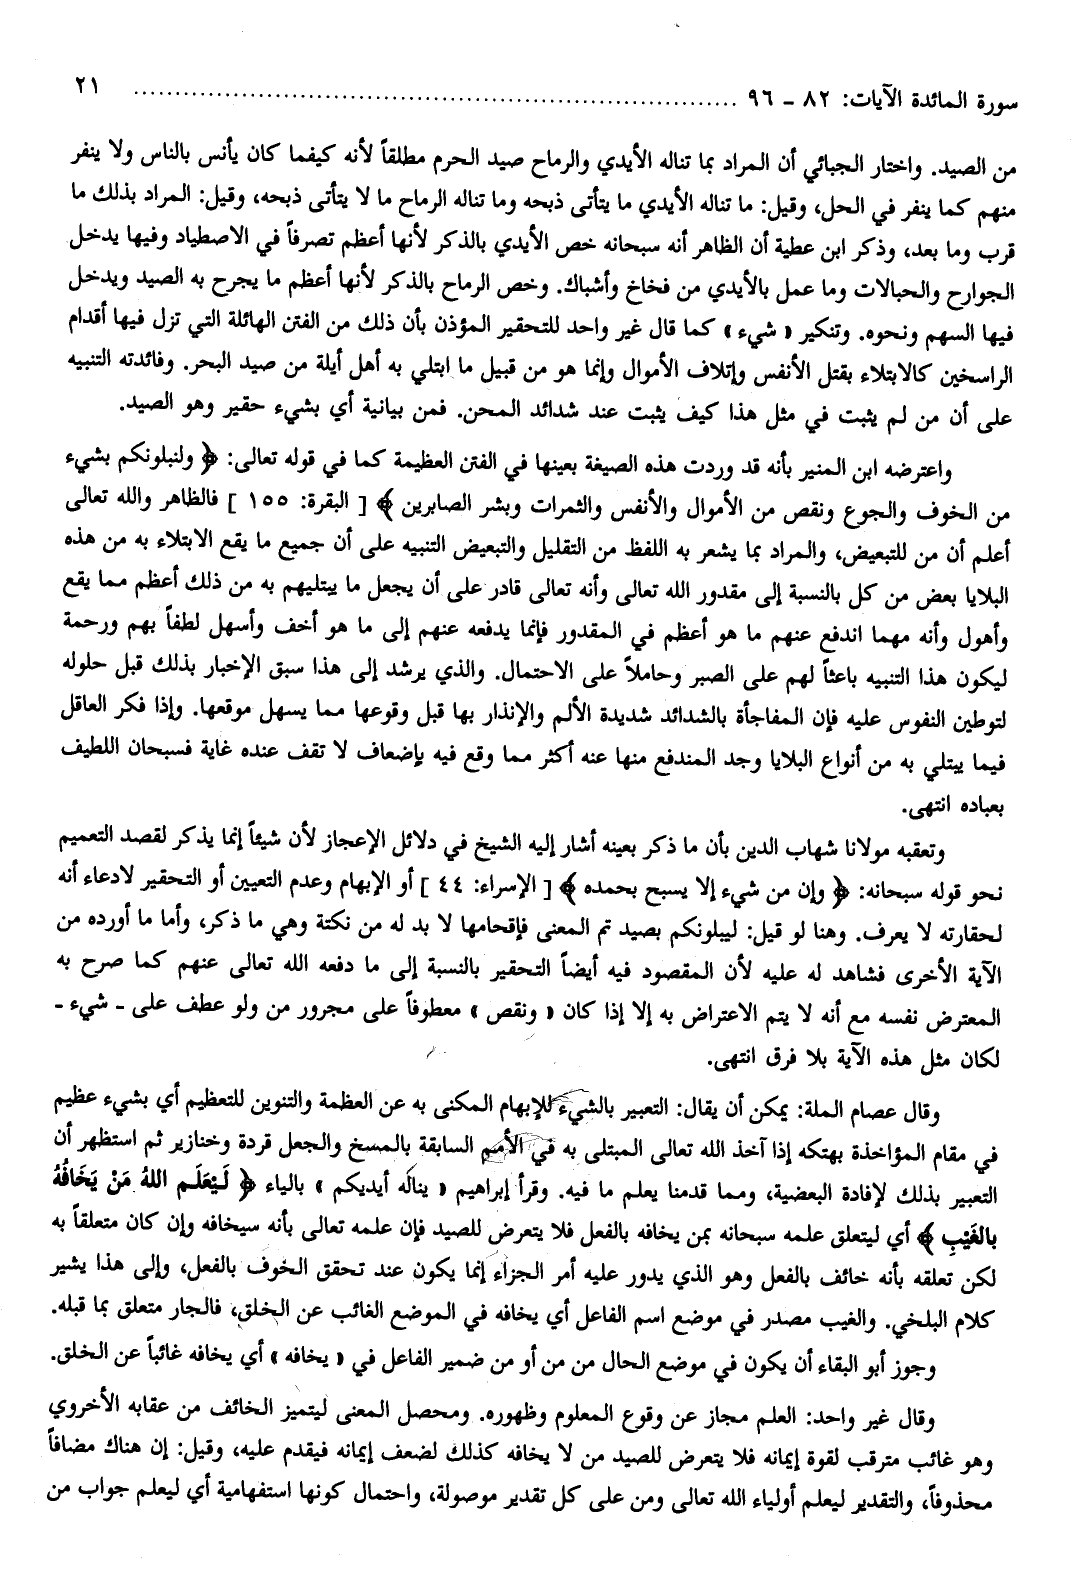 سورة المائدة الآيات: ٨٢ ـ ٩٦ ................................................................ ٢١
من الصيد. واختار الجبائي أن المراد بما تناله الأيدي والرماح صيد الحرم مطلقاً لأنه كيفما كان يأنس بالناس ولا ينفر
منهم كما ينفر في الحل، وقيل: ما تناله الأيدي ما يتأتى ذبحه وما تناله الرماح ما لا يتأتى ذبحه، وقيل: المراد بذلك ما
قرب وما بعد، وذكر ابن عطية أن الظاهر أنه سبحانه خص الأيدي بالذكر لأنها أعظم تصرفاً في الاصطياد وفيها يدخل
الجوارح والحبالات وما عمل بالأيدي من فخاخ وأشباك. وخص الرماح بالذكر لأنها أعظم ما يجرح به الصيد ويدخل
فيها السهم ونحوه. وتنكير « شيء » كما قال غير واحد للتحقير المؤذن بأن ذلك من الفتن الهائلة التي تزل فيها أقدام
الراسخين كالابتلاء بقتل الأنفس وإتلاف الأموال وإنما هو من قبيل ما ابتلي به أهل أيلة من صيد البحر. وفائدته التنبيه
على أن من لم يثبت في مثل هذا كيف يثبت عند شدائد المحن. فمن بيانية أي بشيء حقير وهو الصيد.
واعترضه ابن المنير بأنه قد وردت هذه الصيغة بعينها في الفتن العظيمة كما في قوله تعالى: ﴿ ولنبلونكم بشيء
من الخوف والجوع ونقص من الأموال والأنفس والثمرات وبشر الصابرين ﴾ [ البقرة: ١٥٥ ] فالظاهر والله تعالى
أعلم أن من للتبعيض، والمراد بما يشعر به اللفظ من التقليل والتبعيض التنبيه على أن جميع ما يقع الابتلاء به من هذه
البلايا بعض من كل بالنسبة إلى مقدور الله تعالى وأنه تعالى قادر على أن يجعل ما يبتليهم به من ذلك أعظم مما يقع
وأهول وأنه مهما اندفع عنهم ما هو أعظم في المقدور فإنما يدفعه عنهم إلى ما هو أخف وأسهل لطفاً بهم ورحمة
ليكون هذا التنبيه باعثاً لهم على الصبر وحاملاً على الاحتمال. والذي يرشد إلى هذا سبق الإخبار بذلك قبل حلوله
لتوطين النفوس عليه فإن المفاجأة بالشدائد شديدة الألم والإنذار بها قبل وقوعها مما يسهل موقعها. وإذا فكر العاقل
فيما يبتلي به من أنواع البلايا وجد المندفع منها عنه أكثر مما وقع فيه بإضعاف لا تقف عنده غاية فسبحان اللطيف
بعباده انتهى.
وتعقبه مولانا شهاب الدين بأن ما ذكر بعينه أشار إليه الشيخ في دلائل الإعجاز لأن شيئاً إنما يذكر لقصد التعميم
نحو قوله سبحانه: ﴿ وإن من شيء إلا يسبح بحمده ﴾ [ الإسراء: ٤٤ ] أو الإبهام وعدم التعيين أو التحقير لادعاء أنه
لحقارته لا يعرف. وهنا لو قيل: ليبلونكم بصيد تم المعنى فإقحامها لا بد له من نكتة وهي ما ذكر، وأما ما أورده من
الآية الأخرى فشاهد له عليه لأن المقصود فيه أيضاً التحقير بالنسبة إلى ما دفعه الله تعالى عنهم كما صرح به
المعترض نفسه مع أنه لا يتم الاعتراض به إلا إذا كان « ونقص » معطوفاً على مجرور من ولو عطف على ـ شيء ـ
لكان مثل هذه الآية بلا فرق انتهى.
وقال عصام الملة: يمكن أن يقال: التعبير بالشيء للإبهام المكنى به عن العظمة والتنوين للتعظيم أي بشيء عظيم
في مقام المؤاخذة بهتكه إذا آخذ الله تعالى المبتلى به في الأمم السابقة بالمسخ والجعل قردة وخنازير ثم استظهر أن
التعبير بذلك لإفادة البعضية، ومما قدمنا يعلم ما فيه. وقرأ إبراهيم « يناله أيديكم » بالياء ﴿ لَيَعْلَم اللهُ مَنْ يَخَافُهُ
بالغَيْبِ ﴾ أي ليتعلق علمه سبحانه بمن يخافه بالفعل فلا يتعرض للصيد فإن علمه تعالى بأنه سيخافه وإن كان متعلقاً به
لكن تعلقه بأنه خائف بالفعل وهو الذي يدور عليه أمر الجزاء إنما يكون عند تحقق الخوف بالفعل، وإلى هذا يشير
كلام البلخي. والغيب مصدر في موضع اسم الفاعل أي يخافه في الموضع الغائب عن الخلق، فالجار متعلق بما قبله.
وجوز أبو البقاء أن يكون في موضع الحال من من أو من ضمير الفاعل في « يخافه » أي يخافه غائباً عن الخلق.
وقال غير واحد: العلم مجاز عن وقوع المعلوم وظهوره. ومحصل المعنى ليتميز الخائف من عقابه الأخروي
وهو غائب مترقب لقوة إيمانه فلا يتعرض للصيد من لا يخافه كذلك لضعف إيمانه فيقدم عليه، وقيل: إن هناك مضافاً
محذوفاً، والتقدير ليعلم أولياء الله تعالى ومن على كل تقدير موصولة، واحتمال كونها استفهامية أي ليعلم جواب من